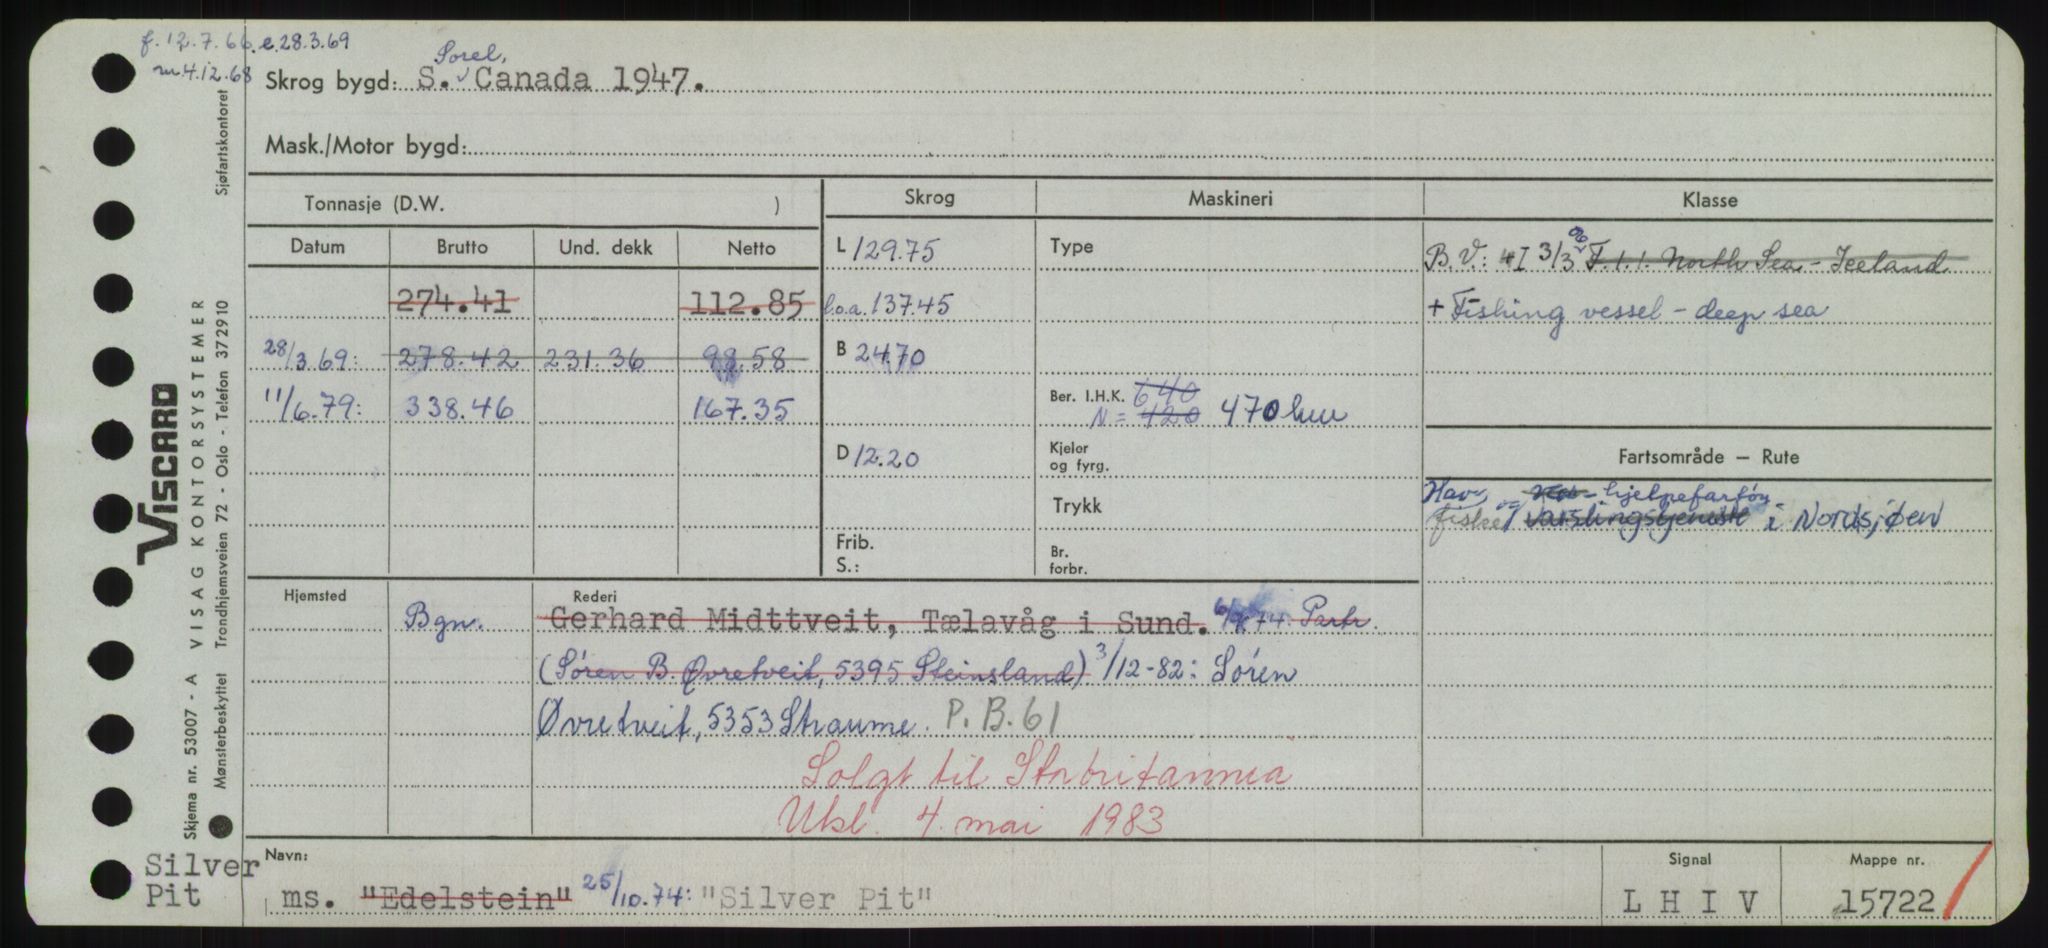 f. 12.7.66. e. 28.3.69
m. 4.12.68
Sorel,
Skrog bygd: S. Canada 1947.
Mask./Motor bygd:
Tonnasje (D.W. )
Skrog
Maskineri
Klasse
Datum
Brutto
Und. dekk
Netto
L 129.75
Type
B.V.: I 3/3 F. 1.1. North Sea - Iceland
274.41
112.85
l.o.a. 137.45
+ Fishing vessel - deep sea
28/3.69: 278.42 231.36 98.58
B 24.70
11/6.79: 338.46 167.35
Ber. I.H.K. 640
N = 420 470 hk
D 12.20
Kjeler og fyrg.
Fartsområde — Rute
Trykk
Hav, hjelpefartøy
fiske/ varslingstjeneste i Nordsjøen
Frib.
S.:
Br. forbr.
Hjemsted
Rederi
Bgn. Gerhard Midttveit, Tælavåg i Sund. 74. Partr.
(Søren B. Øvretveit, 5395 Steinsland) 3/12-82: Søren
Øvretveit, 5353 Straume. P.B. 61
Solgt til Storbritannia
Utsl. 4. mai 1983
Navn:
Signal
Mappe nr.
ms. "Edelstein" 25/10.74: "Silver Pit"
L H I V
15722
Silver
Pit
VISCARD
VISAG KONTORSYSTEMER
Sjøfartskontoret
Skjema nr. 53007 - A
Mønsterbeskyttet Trondhjemsveien 72 - Oslo - Telefon 372910